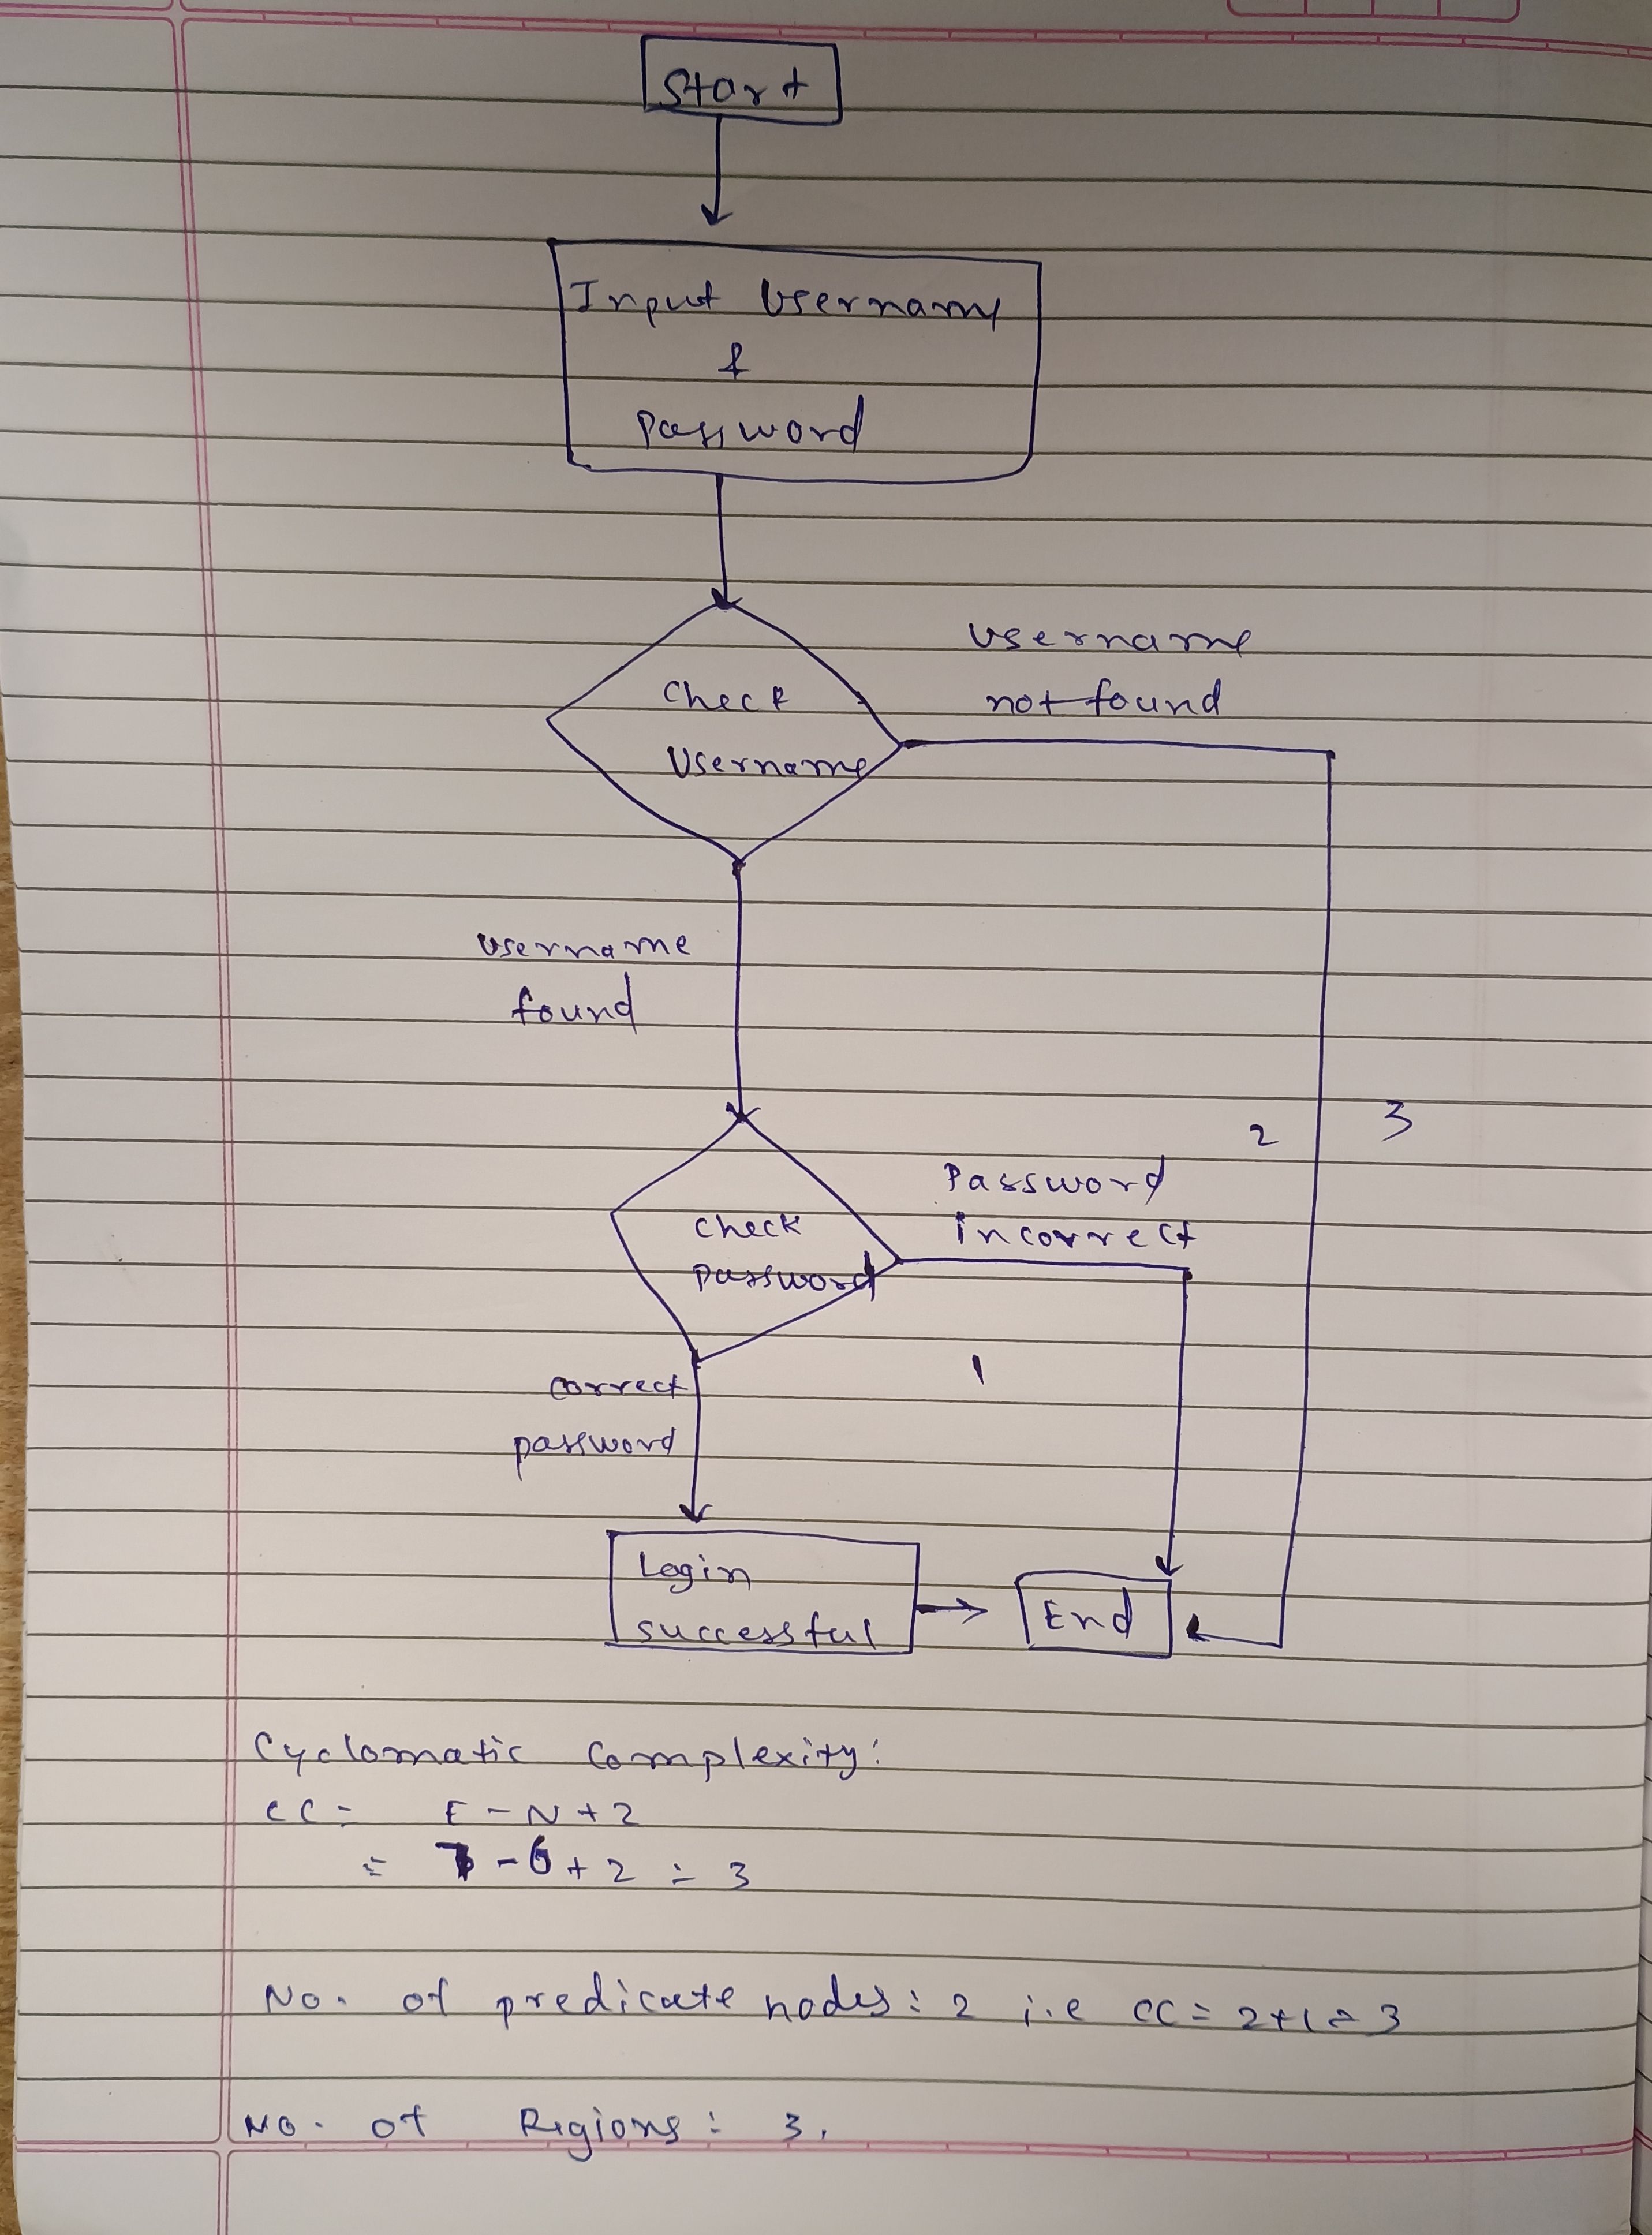 Start
Input Username
&
Password
Check
Username
Username
not found
Username
found
2
3
Password
incorrect
Check
password
1
correct
password
Login
successful
End
Cyclomatic Complexity:
CC = E - N + 2
= 7 - 6 + 2 = 3
No. of predicate nodes: 2 i.e CC = 2+1 = 3
No. of Regions: 3.